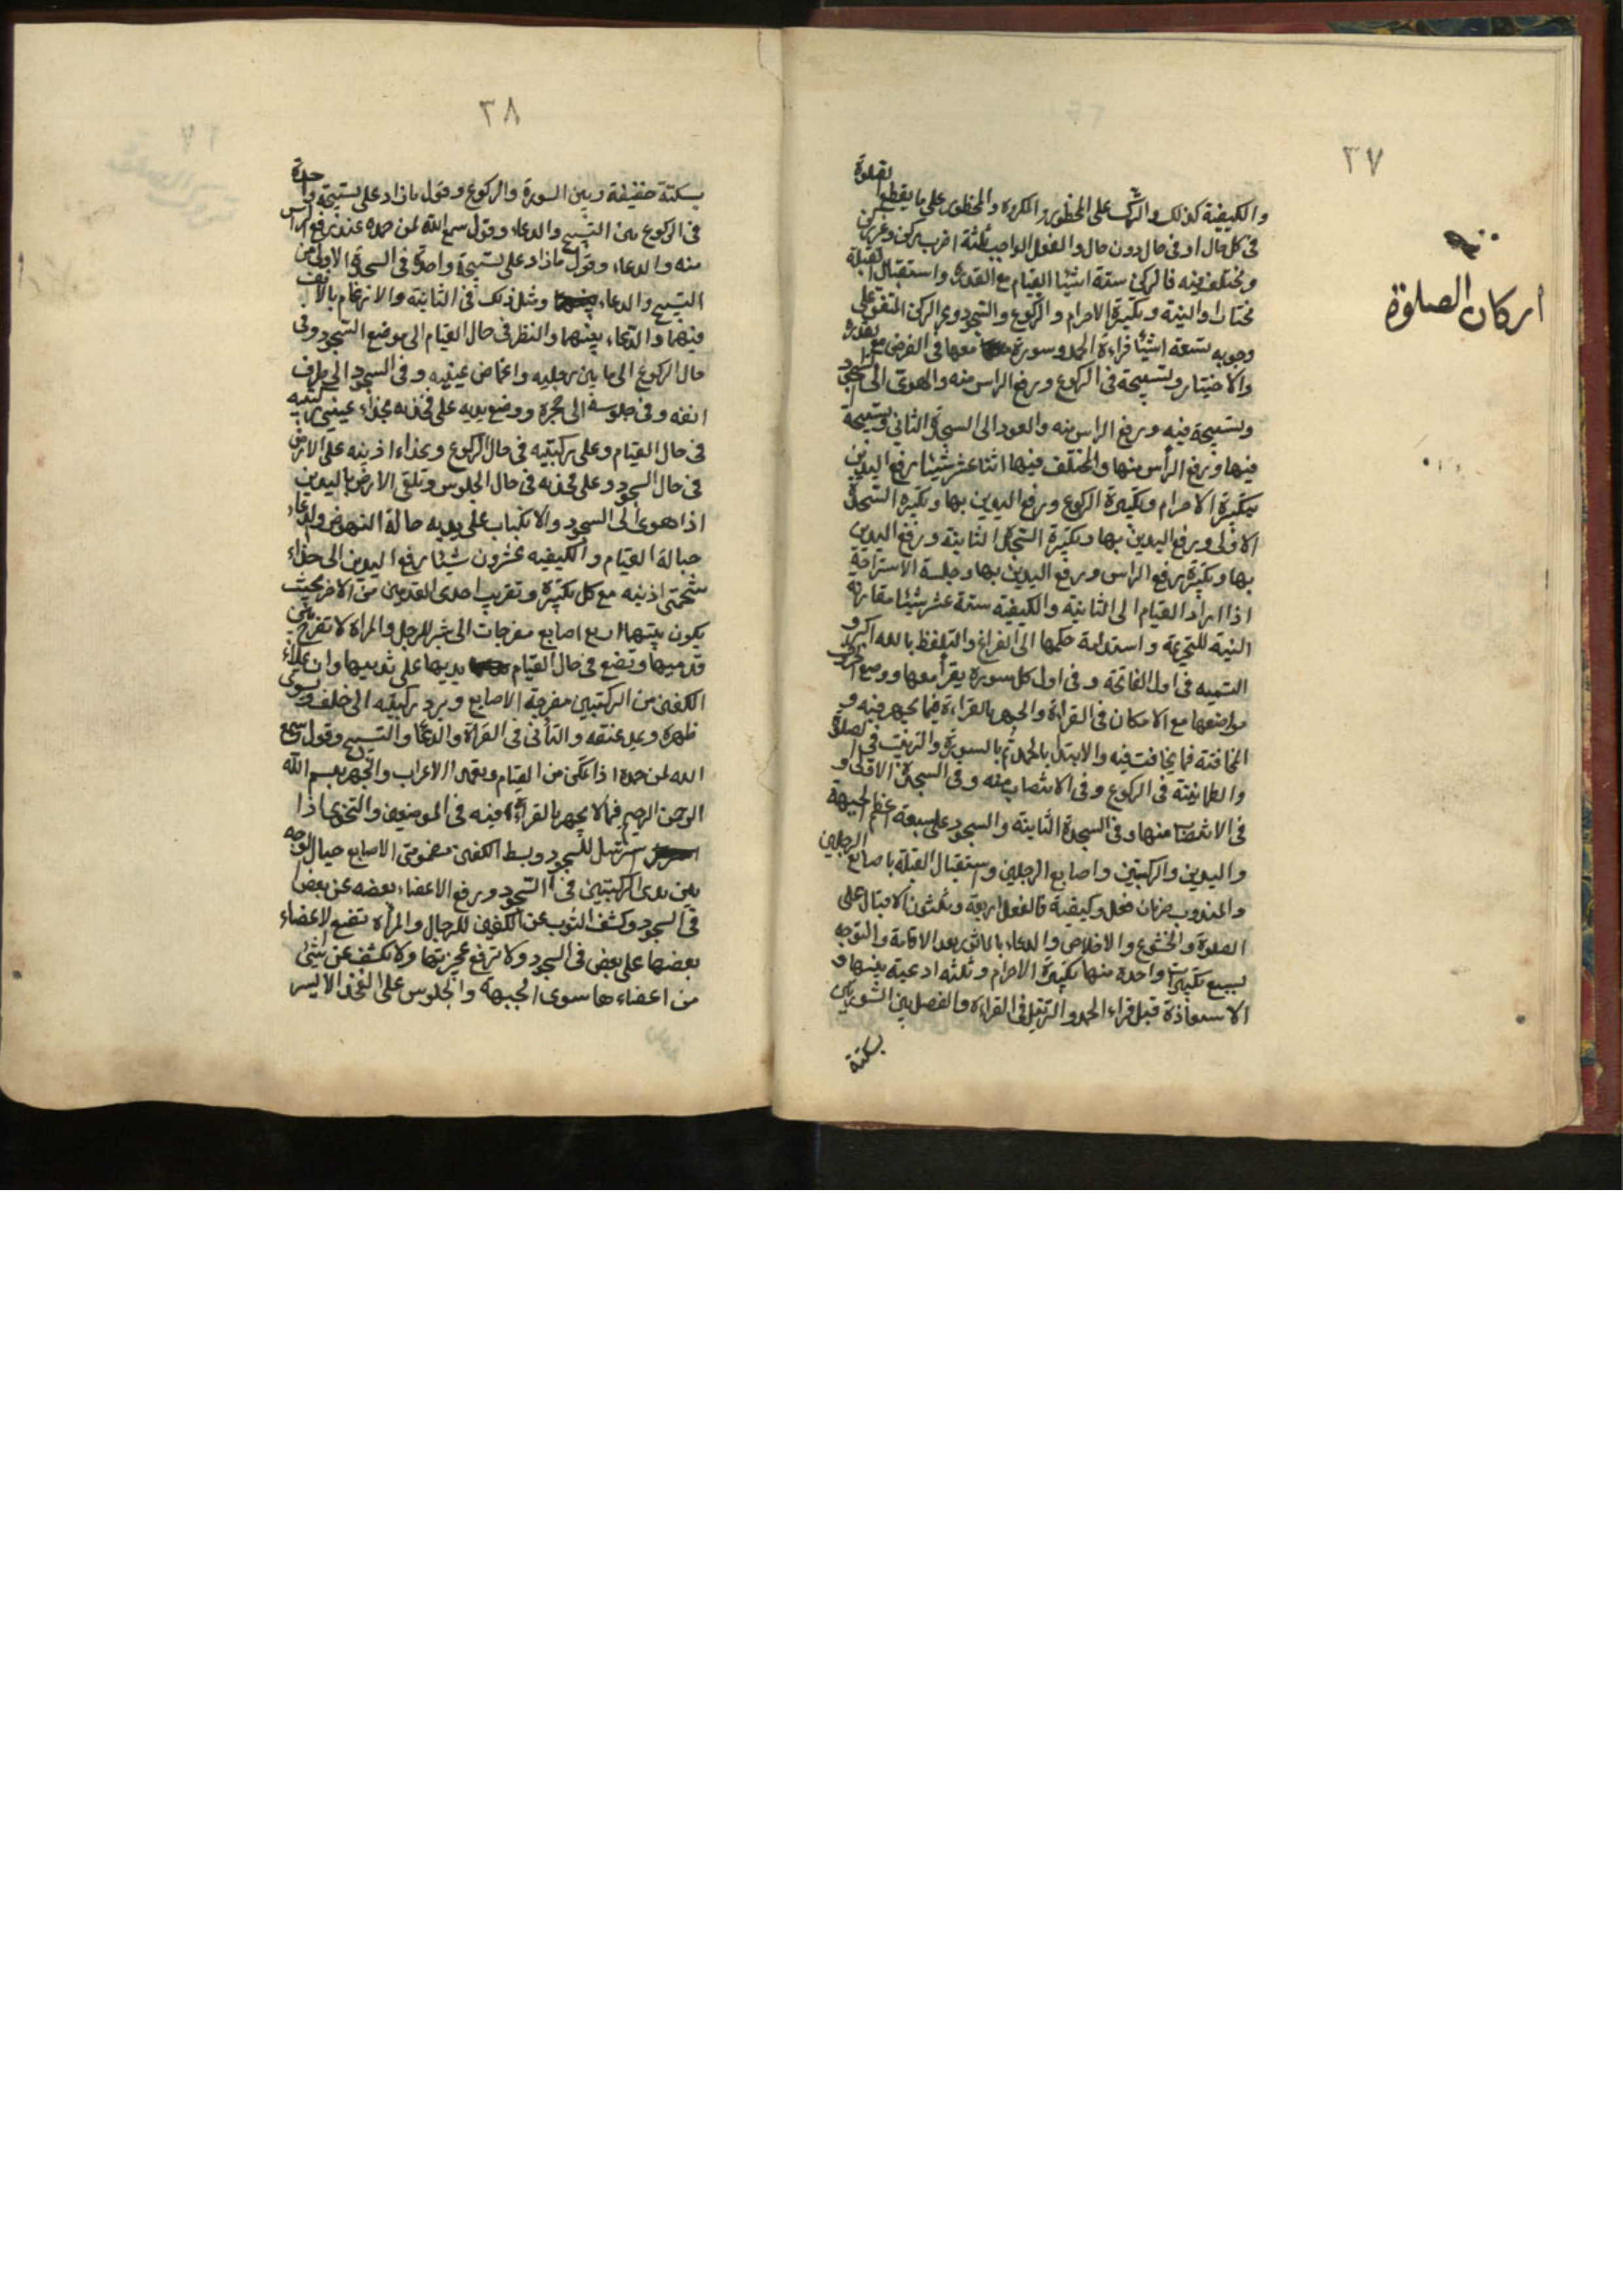 ٣٧
اركان الصلوة
والكيفية كذلك والترك على المحظور والمكروه والمحظور على ما يقطع الصلوة
في كل حال او في حال دون حال والفعل الواجب ثلثة اضرب ركن وغير ركن
ومختلف فيه فالركن ستة اشيا القيام مع القدرة واستقبال القبلة
مختارا والنية وتكبيرة الاحرام والركوع والسجود وغير الركن المتفق على
وجوبه تسعة اشيا قراءة الحمد وسورة معها في الفرض مع القدرة
والاختيار وتسبيحة في الركوع ورفع الراس منه والهوى الى السجود
وتسبيحة فيه ورفع الراس منه والعود الى السجدة الثاني وتسبيحة
فيها ورفع الرأس منها والمختلف فيها اثنا عشر شيئا رفع اليدين
بتكبيرة الاحرام وتكبيرة الركوع ورفع اليدين بها وتكبيرة السجدة
الاولى ورفع اليدين بها وتكبيرة السجدة الثانية ورفع اليدين
بها وتكبيرة رفع الراس ورفع اليدين بها وجلسة الاستراحة
اذا اراد القيام الى الثانية والكيفية ستة عشر شيئا مقارنة
النية للتحريمة واستدامة حكمها الى الفراغ والتلفظ بالله اكبر و
التسميه في اول الفاتحة وفي اول كل سورة يقرأ معها ووضع الحروف
مواضعها مع الامكان في القراءة والجهر بالقراءة فيما يجهر فيه و
المخافتة فما يخافت فيه والابتداء بالحمد ثم بالسورة والترتيب في الصلوة
والطمانينة في الركوع وفي الانتصاب منه وفي السجدة الاولى و
في الانتصاب منها وفي السجدة الثانية والسجود على سبعة اعظم الجبهة
واليدين والركبتين واصابع الرجلين واستقبال القبلة باصابع الرجلين
والمندوب ضربان فعل وكيفية فالفعل اربعة وثلثون الاقبال على
الصلوة والخشوع والاخلاص والدعاء بالماثور بعد الاقامة والتوجه
بسبع تكبيرات واحدة منها تكبيرة الاحرام وثلثه ادعية بينها و
الاستعاذة قبل قراءة الحمد والترتيل في القراءة والفصل بين السورتين
بسكتة
٣٨
بسكتة خفيفة وبين السورة والركوع وقول ما زاد على تسبيحة واحدة
في الركوع من التسبيح والدعاء وقول سمع الله لمن حمده عند رفع الراس
منه والدعاء وقول ما زاد على تسبيحة واحدة في السجدة الاولى من
التسبيح والدعاء ومثل ذلك في الثانية والارغام بالانف
فيهما والدعاء بينهما والنظر في حال القيام الى موضع السجود وفي
حال الركوع الى ما بين رجليه واغماض عينيه وفي السجود الى طرف
انفه وفي جلوسه الى حجره ووضع يديه على فخذيه بحذاء عيني ركبتيه
في حال القيام وعلى ركبتيه في حال الركوع وبحذاء اذنيه على الارض
في حال السجود وعلى فخذيه في حال الجلوس وتلقى الارض باليدين
اذا هوى الى السجود والانكباب على يديه حالة النهوض والدعاء
حبالة القيام والكيفيه عشرون شيئا رفع اليدين الى حذاء
شحمتي اذنيه مع كل تكبيرة وتقريب احدى القدمين من الاخر بحيث
يكون بينهما اربع اصابع مفرجات الى شبر للرجل والمراة لا تفرج بين
قدميها وتضع في حال القيام يديها على ثدييها وان علاء
الكفين من الركبتين مفرجة الاصابع ويرد ركبتيه الى خلف ويسوى
ظهره ويمد عنقه والتأنى في القراة والدعاء والتسبيح وقول سمع
الله لمن حمده اذا تمكن من القيام وتعمد الاعراب والجهر ببسم الله
الرحمن الرحيم فيما لا يجهر بالقراءة فيه في الموضعين والتخوى اذا
استرسل للسجود وبسط الكفين مضمومتي الاصابع حيال الوجه
بين يدى الركبتين في السجود ورفع الاعضاء بعضه عن بعض
في السجود وكشف الثوب عن الكفين للرجال والمرأة تضع الاعضاء
بعضها على بعض في السجود ولا ترفع عجيزتها ولا تكشف عن شئ
من اعضاءها سوى الجبهة والجلوس على الفخذ الايسر